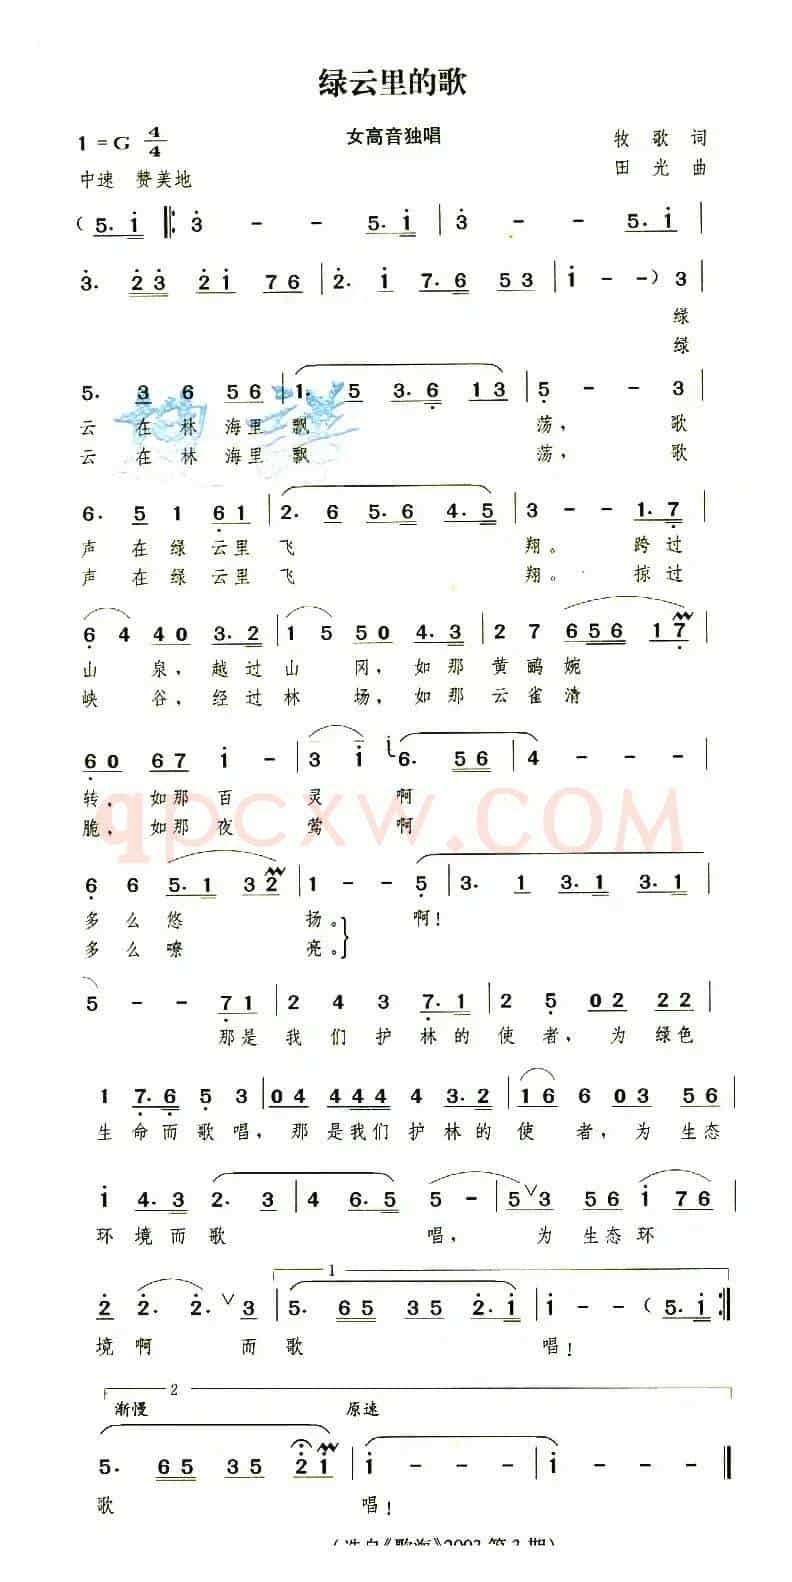 绿云里的歌
1 = G 4/4
女高音独唱
牧 歌 词
中速 赞美地
田 光 曲
( 5. i ‖: 3 - - 5. i | 3 - - 5. i |
3. 2 3 2 i 7 6 | 2. i 7. 6 5 3 | i - - ) 3 |
绿
绿
5. 3 6 5 6 | 1. 5 3. 6 1 3 | 5 - - 3
云 在 林 海 里 飘 荡， 歌
云 在 林 海 里 飘 荡， 歌
6. 5 1 6 1 | 2. 6 5. 6 4. 5 | 3 - - 1. 7 |
声 在 绿 云 里 飞 翔。 跨 过
声 在 绿 云 里 飞 翔。 掠 过
6 4 4 0 3. 2 | 1 5 5 0 4. 3 | 2 7 6 5 6 1 7 |
山 泉， 越 过 山 冈， 如 那 黄 鹂 婉
峡 谷， 经 过 林 场， 如 那 云 雀 清
6 0 6 7 i - | 3 i i 6. 5 6 | 4 - - - |
转， 如 那 百 灵 啊
脆， 如 那 夜 莺 啊
qpcxw.COM
6 6 5. 1 3 2 | 1 - - 5 | 3. 1 3. 1 3. 1 |
多 么 悠 扬。 啊！
多 么 嘹 亮。
5 - - 7 1 | 2 4 3 7. 1 | 2 5 0 2 2 2 |
那 是 我 们 护 林 的 使 者， 为 绿 色
1 7. 6 5 3 | 0 4 4 4 4 4 3. 2 | 1 6 6 0 3 5 6 |
生 命 而 歌 唱， 那 是 我 们 护 林 的 使 者， 为 生 态
i 4. 3 2. 3 | 4 6. 5 5 - | 5 ∨ 3 5 6 i 7 6 |
环 境 而 歌 唱， 为 生 态 环
1
2 2. 2. ∨ 3 | 5. 6 5 3 5 2. i | i - - ( 5. i :‖
境 啊 而 歌 唱！
2
渐慢 原速
5. 6 5 3 5 2 i | i - - - | i - - - ‖
歌 唱！
(选自《歌海》2003 第 3 期)